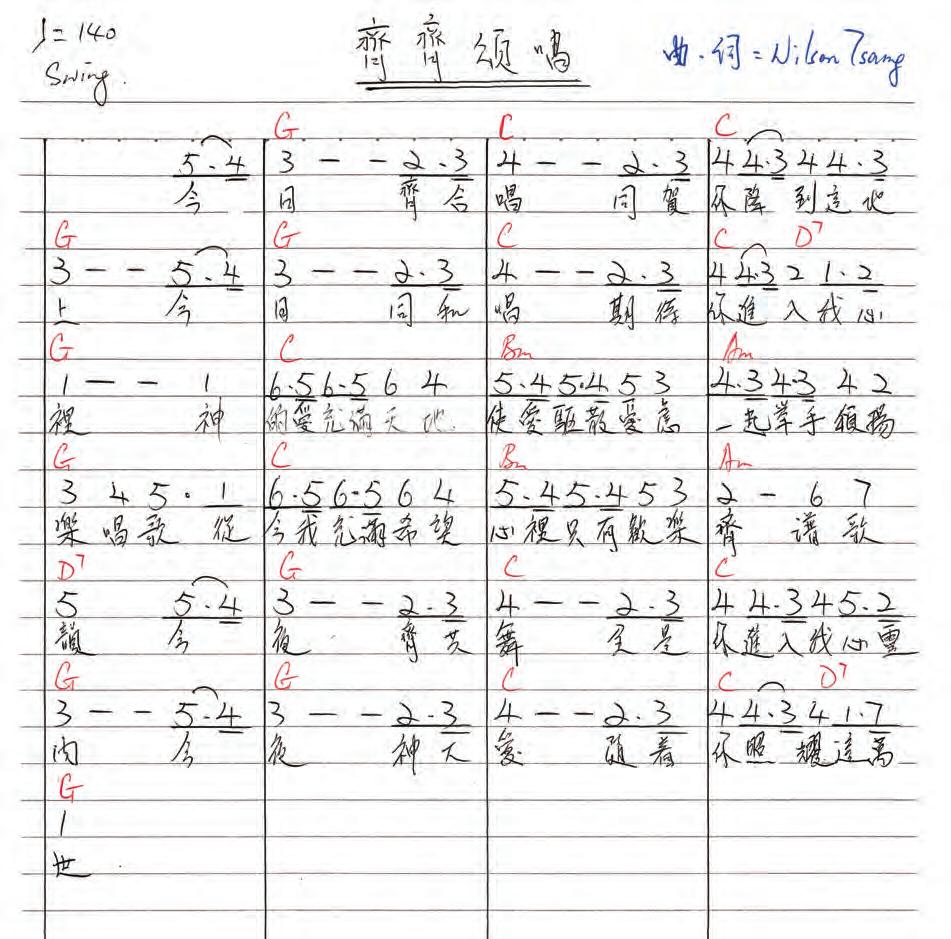 ♩= 140
Swing.
齊齊頌唱
曲.詞 = Nilson Tsang
G C C
5.4 3 - - 2.3 4 - - 2.3 4 4.3 4 4.3
今 日 齊 合 唱 同 賀 祢 降 到 這 地
G G C C D7
3 - - 5.4 3 - - 2.3 4 - - 2.3 4 4.3 2 1.2
上 今 日 同 和 唱 期 待 祢 進 入 我 心
G C Bm Am
1 - - 1 6.5 6.5 6 4 5.4 5.4 5 3 4.3 4.3 4 2
裡 神 的 愛 充 滿 天 地 使 愛 驅 散 憂 慮 一 起 举 手 頌 揚
G C Bm Am
3 4 5 . 1 6.5 6.5 6 4 5.4 5.4 5 3 2 - 6 7
樂 唱 歌 從 今 我 充 滿 希 望 心 裡 只 有 歡 樂 齊 譜 歌
D7 G C C
5 5.4 3 - - 2.3 4 - - 2.3 4 4.3 4 5.2
韻 今 夜 齊 共 舞 全 是 祢 進 入 我 心 靈
G G C C D7
3 - - 5.4 3 - - 2.3 4 - - 2.3 4 4.3 4 1.7
內 今 夜 神 大 愛 隨 着 祢 照 耀 這 萬
G
1
世